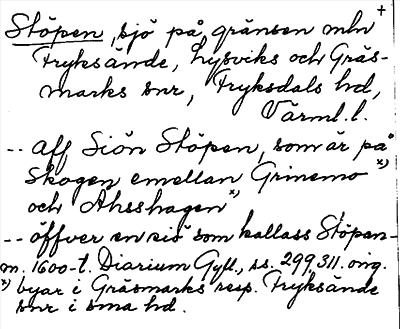 Stöpen, sjö på gränsen mln +
Fryksände, Lysviks och Gräs-
marks snr, Fryksdals hd,
Värml. l.
-- aff Siön Stöpen, som är på
Skogen emellan Grinemo x)
och Åhsshagen x)
-- öffver en siö som kallass Stöpen-
m. 1600-t. Diarium Gyll., ss. 299, 311. orig.
x) byar i Gräsmarks resp. Fryksände
snr i sma hd.